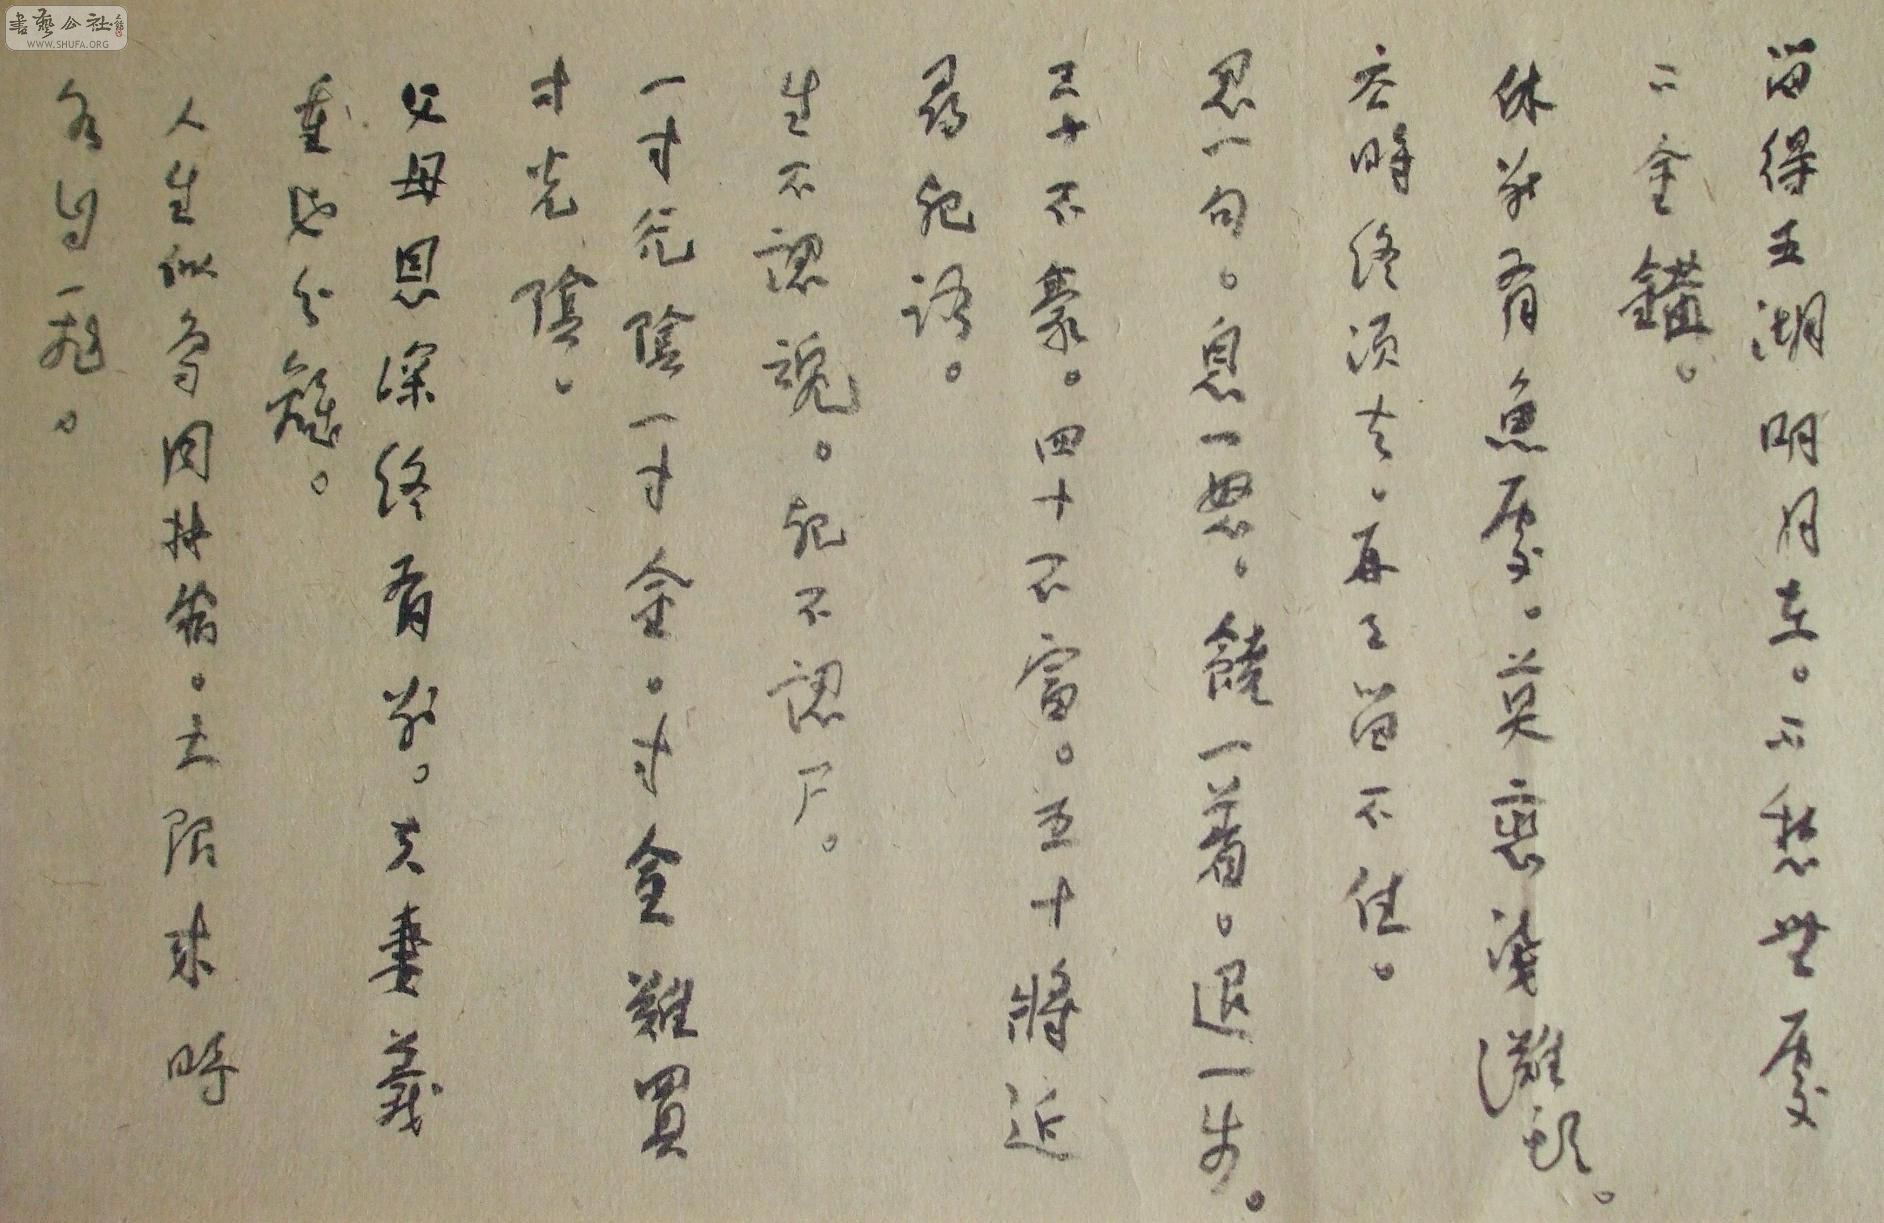 書藝公社
WWW.SHUFA.ORG
留得五湖明月在。不愁無處
下金。
休別有魚處。莫戀淺灘頭。
去時終須去。再三留不住。
忍一句。息一怒。饒一着。退一步。
三十不豪。四十不富。五十將近
尋死路。
生不認魂。死不認尸。
一寸光陰一寸金。寸金難買
寸光陰。
父母恩深終有別。夫妻義
重也分離。
人生似鳥同林宿。大限來時
各自飛。